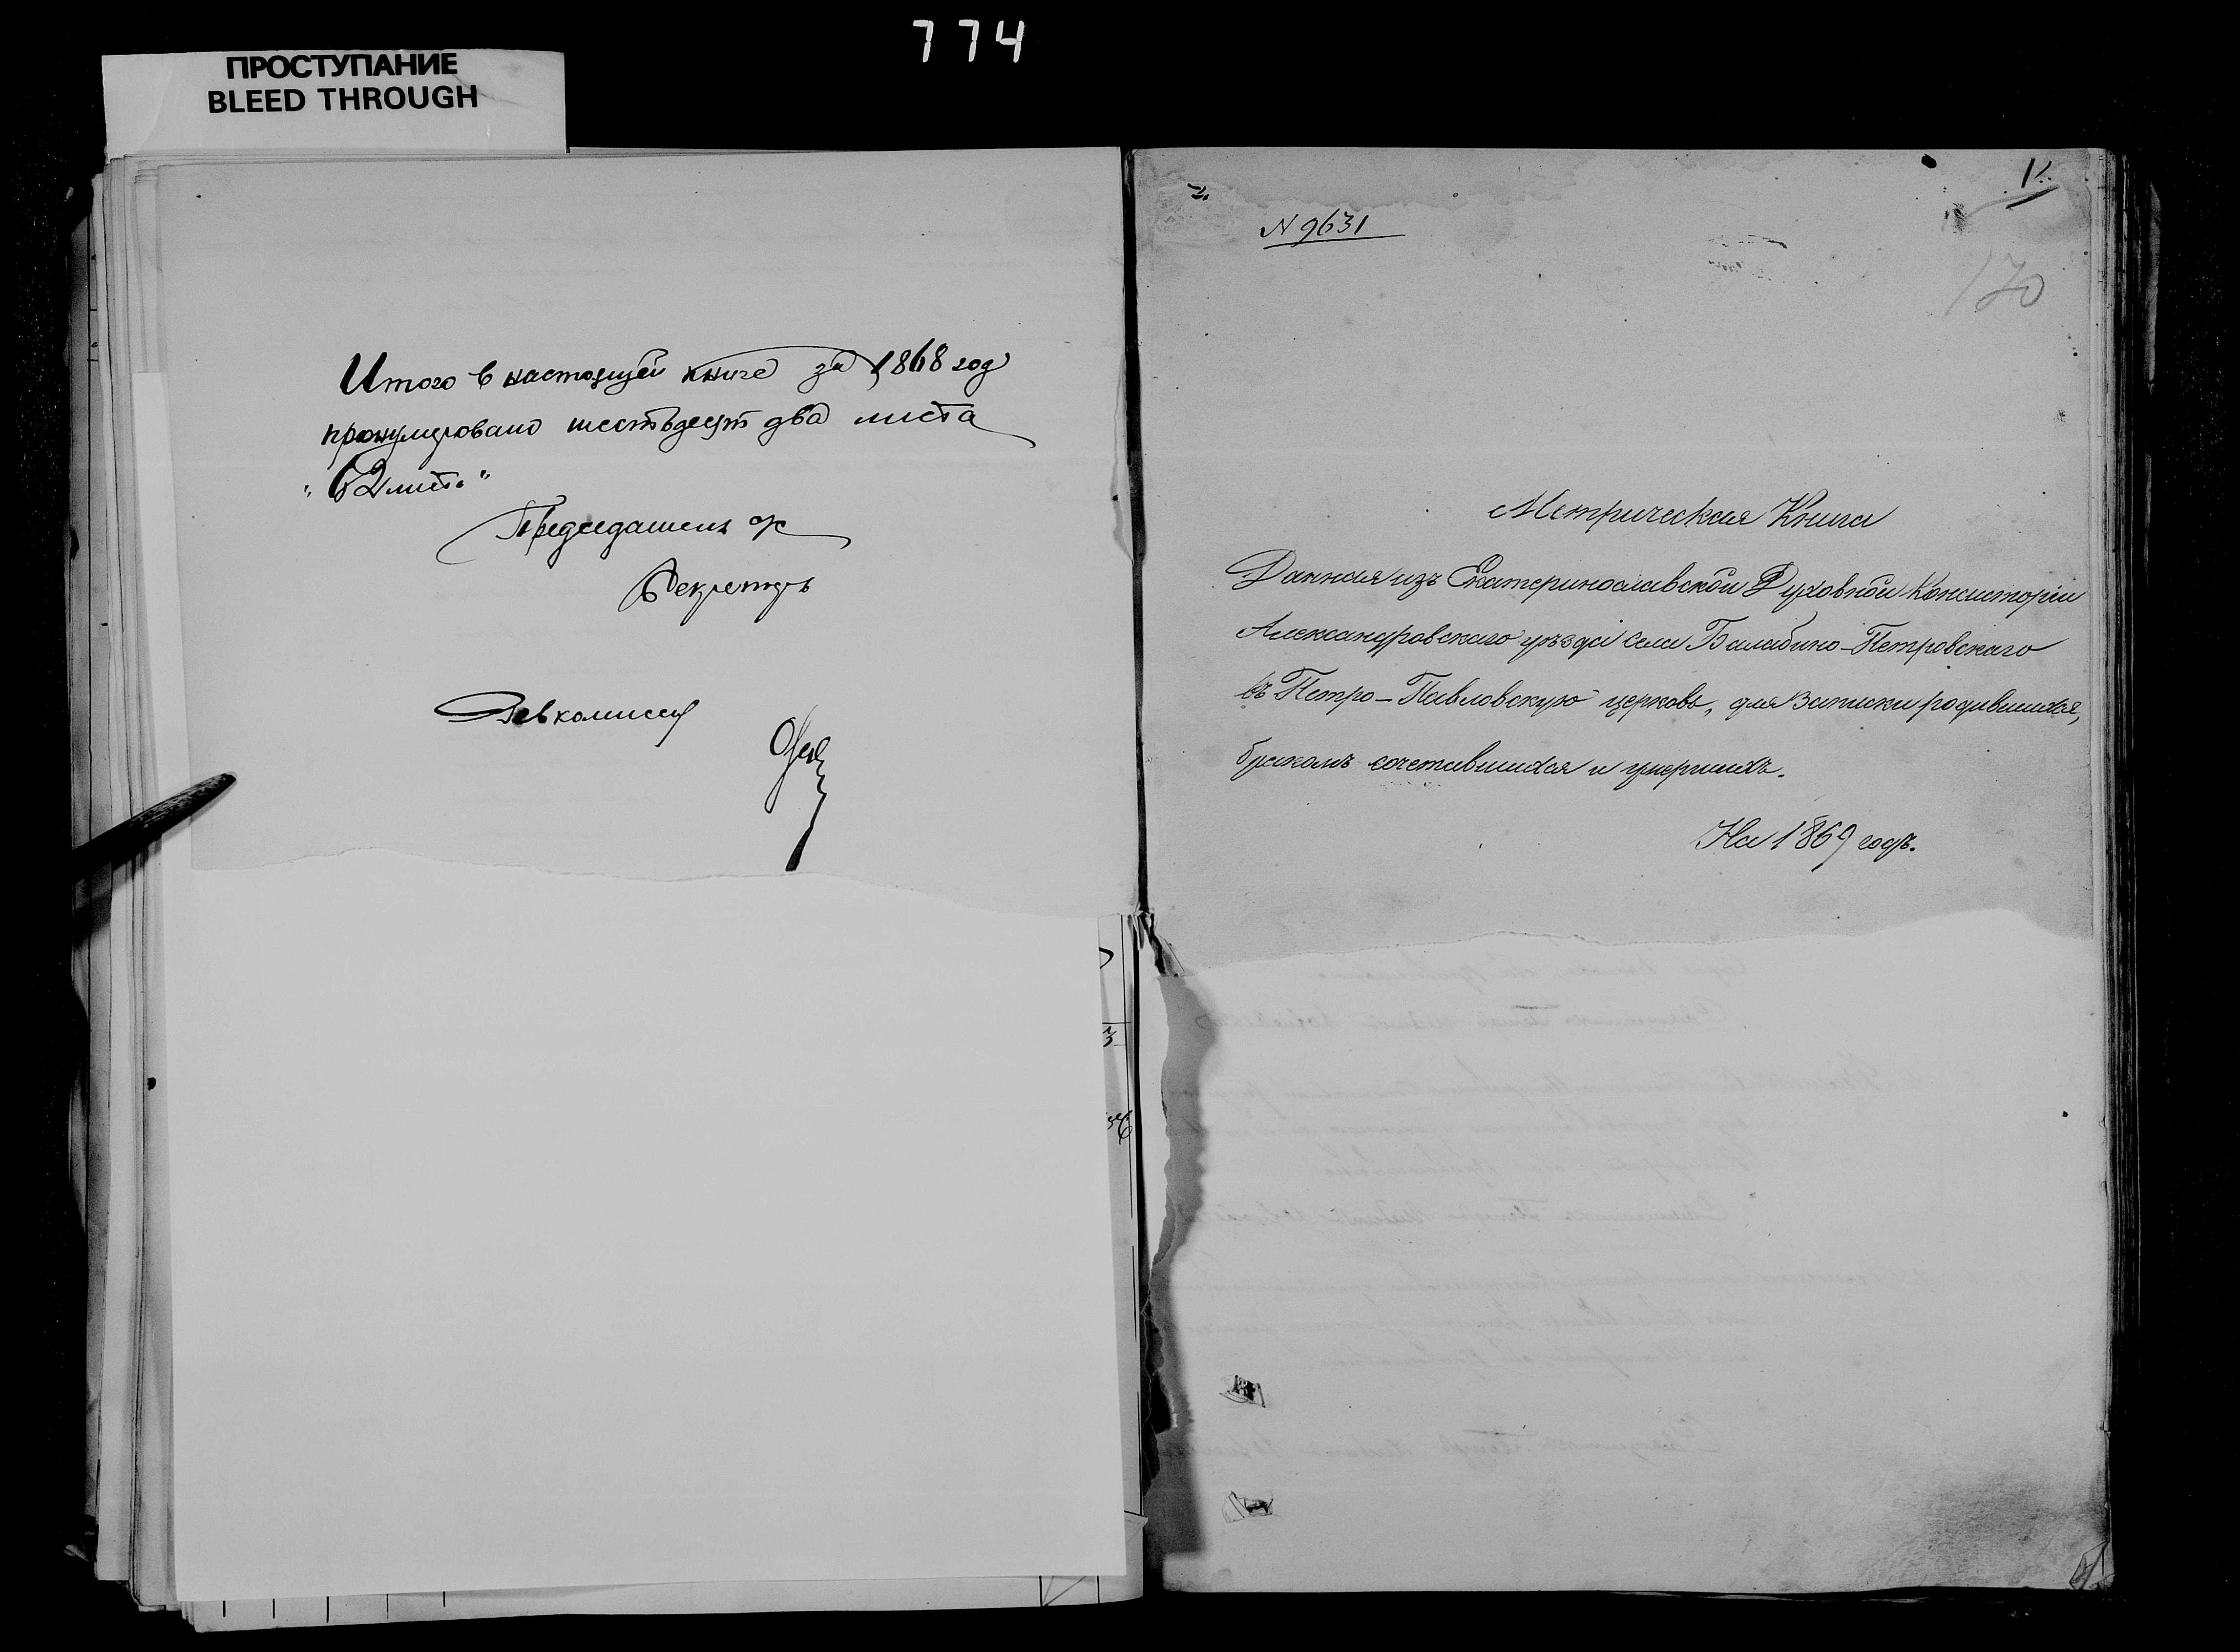 774
ПРОСТУПАНИЕ
BLEED THROUGH
Итого в настоящей книге за 1868 год
пронумеровано шестьдесят два листа
"62 листа"
Председатель
Секретарь
Ревкомиссу
1
N 9631
170
Метрическая Книга
Данная изъ Екатеринославской Духовной Консисторіи
Александровскаго уѣзда села Балабино-Петровскаго
въ Петро-Павловскую церковь, для записки родившихся,
бракомъ сочетавшихся и умершихъ.
На 1869 годъ.